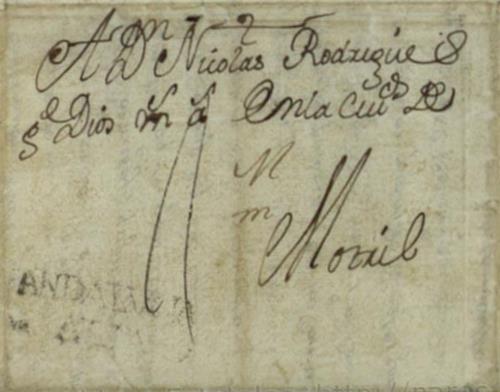 A Dn Nicolas Rodrigue
ge Dios ms as En la Ciud De
M
m
Motril
ANDALU